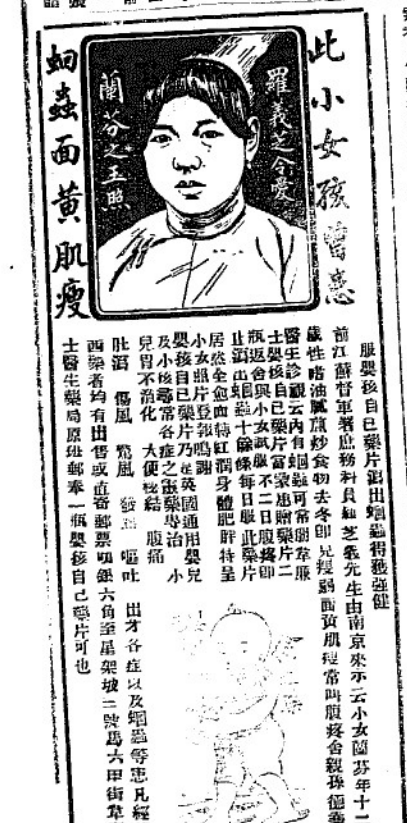 此小女孩曾患
蛔蟲面黃肌瘦
羅義芝令愛
蘭芬之玉照
服嬰孩自己藥片瀉出蛔蟲得獲強健
前江蘇督軍署庶務科員羅芝義先生由南京來示云小女蘭芬年十二
歲性嗜油膩煎炒食物去冬卽見瘦弱面黃肌瘦常叫腹疼舍親孫德
醫生診視云內有蛔蟲可常服韋廉
士嬰孩自己藥片當蒙惠贈藥片二
瓶返舍與小女試服不二日腹疼卽
止瀉出蛔蟲十餘條每日服此藥片
居然全愈血轉紅潤身體肥胖特呈
小女照片登報鳴謝
嬰孩自己藥片乃是英國通用嬰兒
及小孩尋常各症之靈藥專治 小
兒胃不消化 大便秘結 腹痛
吐瀉 傷風 驚風 發熱 嘔吐 出牙各症以及蛔蟲等患凡經
西藥者均有出售或直寄郵票叻銀六角至星架坡二號馬六甲街韋
士醫生藥局原班郵奉一瓶嬰孩自己藥片可也